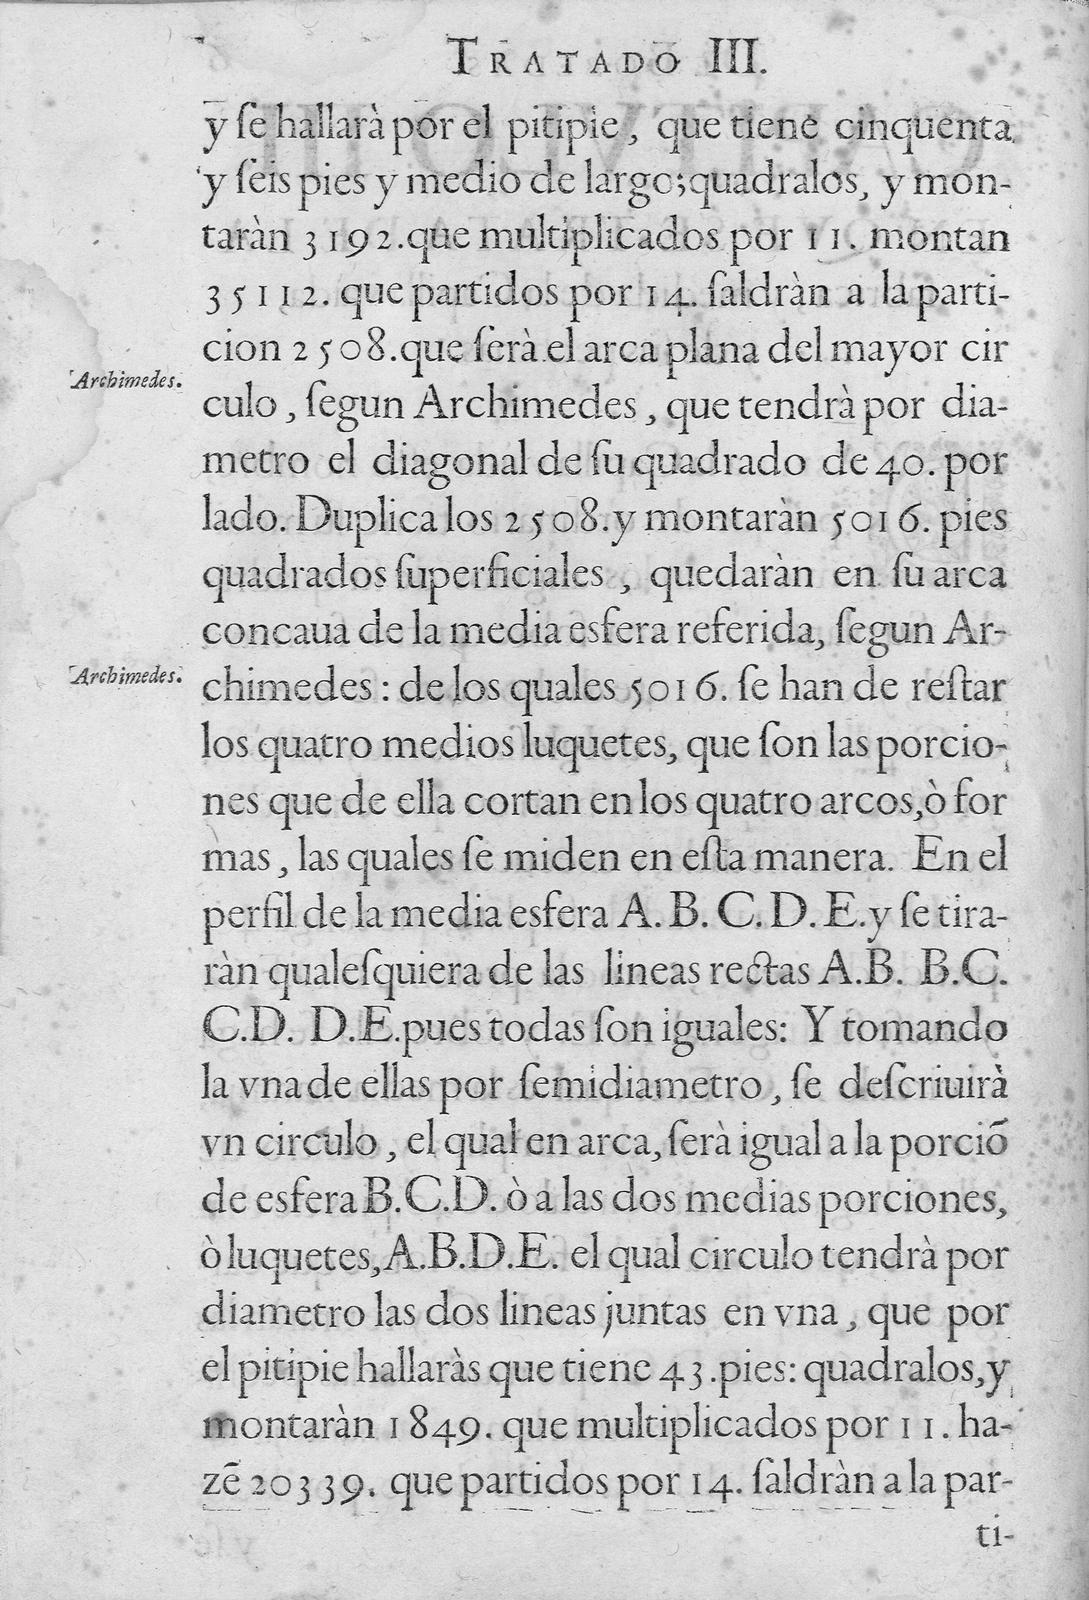 TRATADO III.
y ſe hallarà por el pitipie, que tiene cinquenta
y ſeis pies y medio de largo; quadralos, y mon-
taràn 3192. que multiplicados por 11. montan
35112. que partidos por 14. ſaldràn a la parti-
cion 2508. que ſerà el arca plana del mayor cir
Archimedes.
culo, ſegun Archimedes, que tendrà por dia-
metro el diagonal de ſu quadrado de 40. por
lado. Duplica los 2508. y montaràn 5016. pies
quadrados ſuperficiales, quedaràn en ſu arca
concaua de la media esfera referida, ſegun Ar-
Archimedes.
chimedes: de los quales 5016. ſe han de reſtar
los quatro medios luquetes, que ſon las porcio-
nes que de ella cortan en los quatro arcos, ò for
mas, las quales ſe miden en eſta manera. En el
perfil de la media esfera A. B. C. D. E. y ſe tira-
ràn qualeſquiera de las lineas rectas A.B. B.C.
C.D. D.E. pues todas ſon iguales: Y tomando
la vna de ellas por ſemidiametro, ſe deſcriuirà
vn circulo, el qual en arca, ſerà igual a la porciõ
de esfera B.C.D. ò a las dos medias porciones,
ò luquetes, A.B.D.E. el qual circulo tendrà por
diametro las dos lineas juntas en vna, que por
el pitipie hallaràs que tiene 43. pies: quadralos, y
montaràn 1849. que multiplicados por 11. ha-
zẽ 20339. que partidos por 14. ſaldràn a la par-
ti-